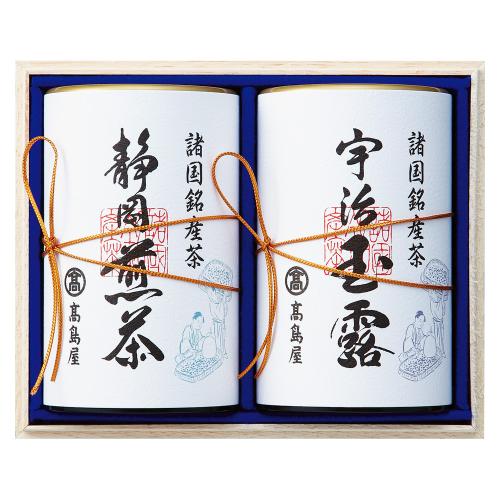 諸国銘産茶
静岡煎茶
髙
髙島屋
諸国銘産茶
宇治玉露
髙
髙島屋